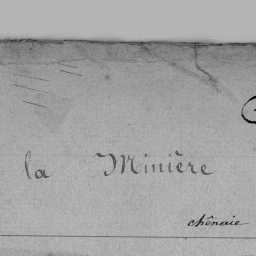 la Minière
chênaie